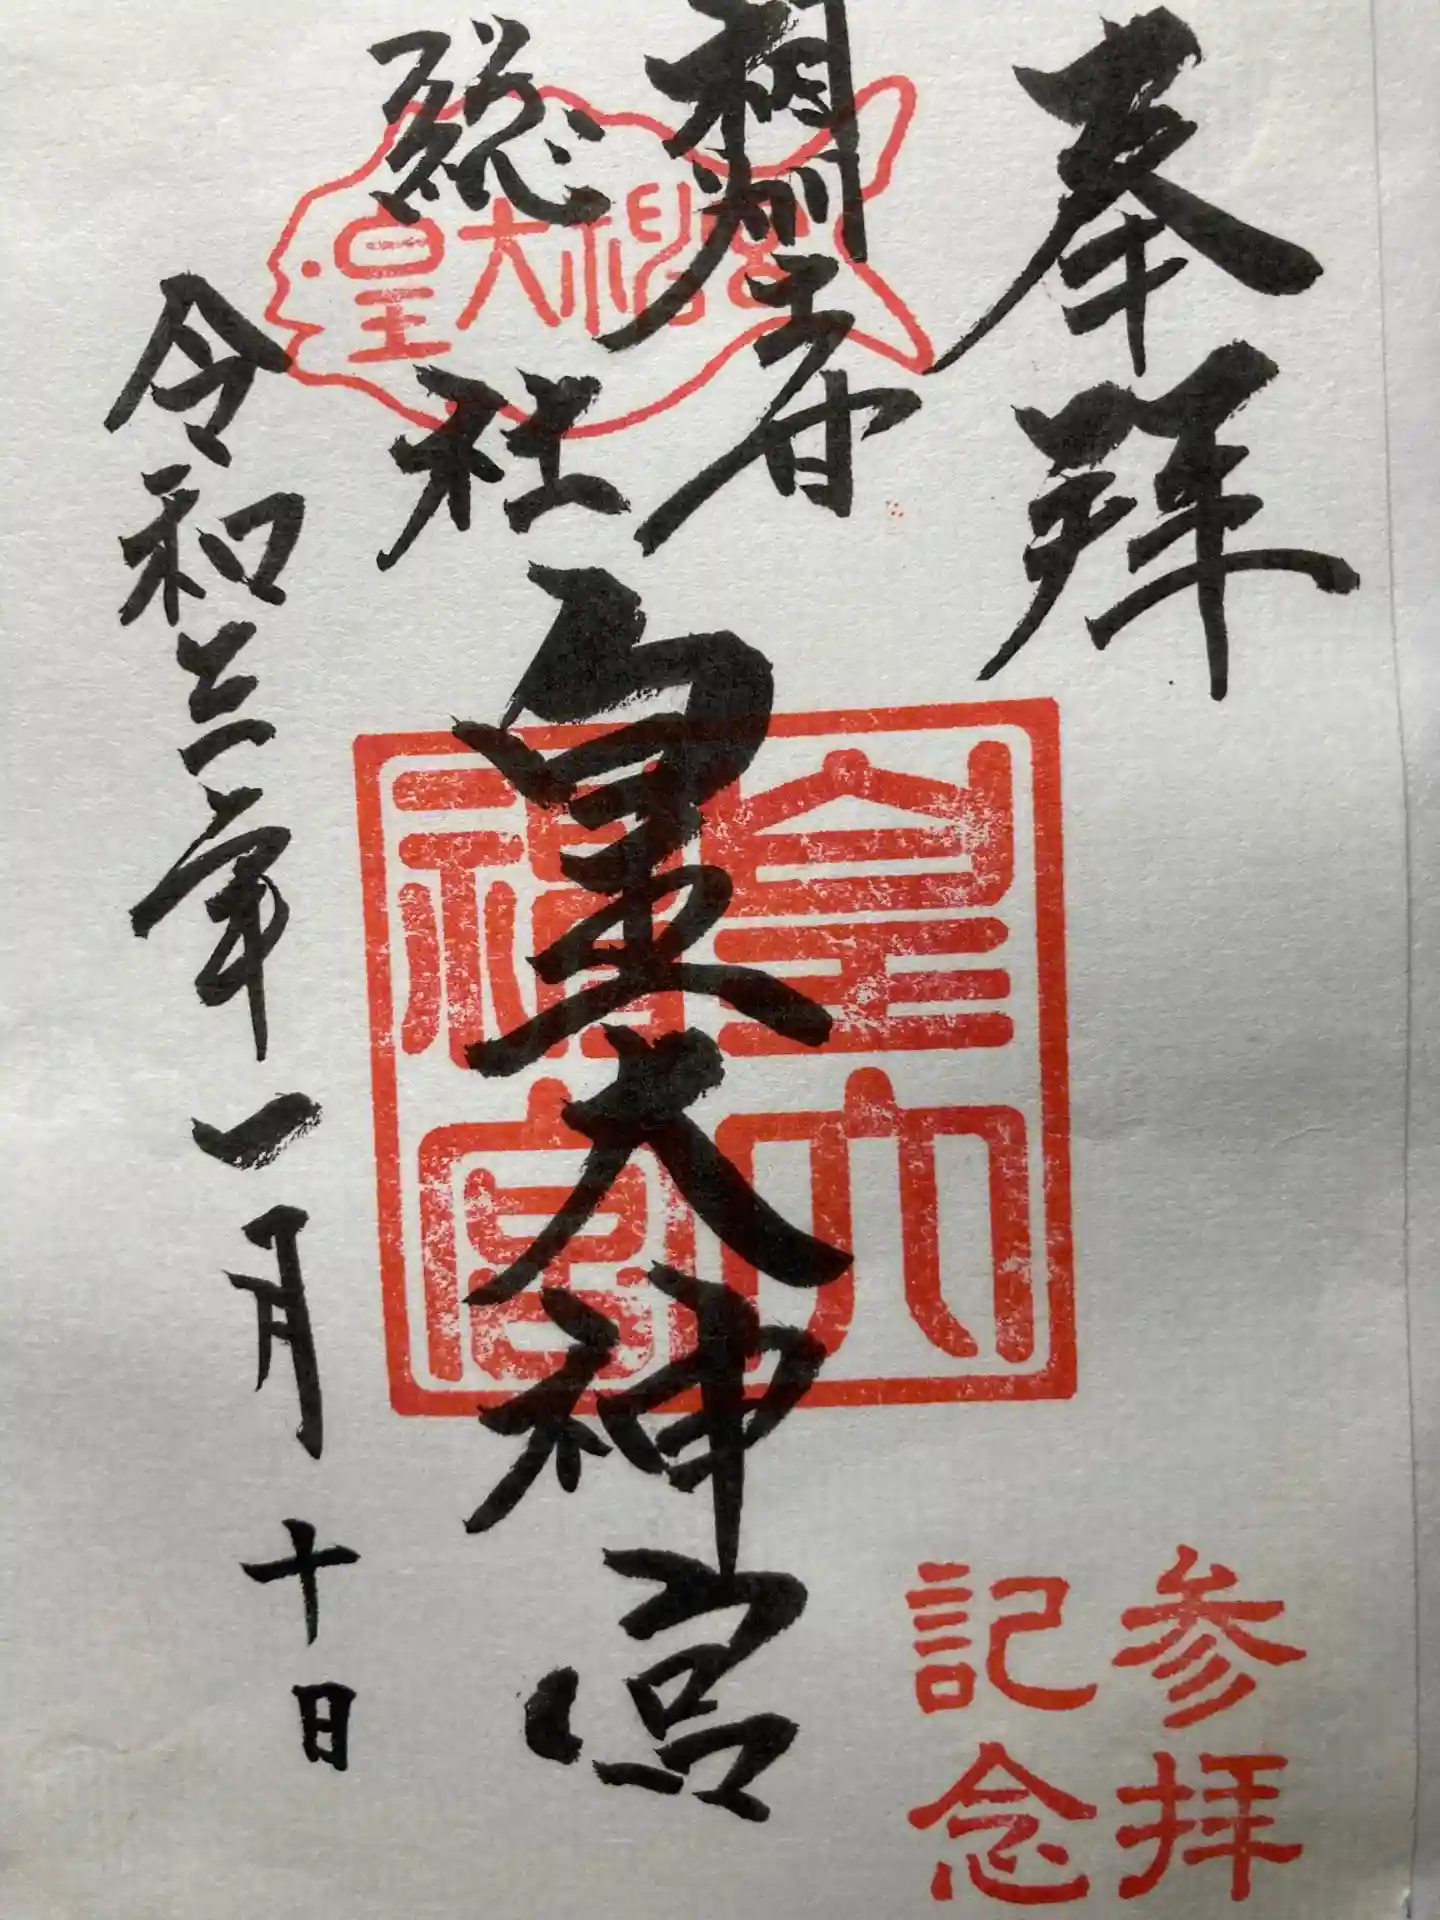 奉拝
相州
総社
皇大神宮
令和三年一月十日
皇大神宮
皇大
神宮
参拝
記念